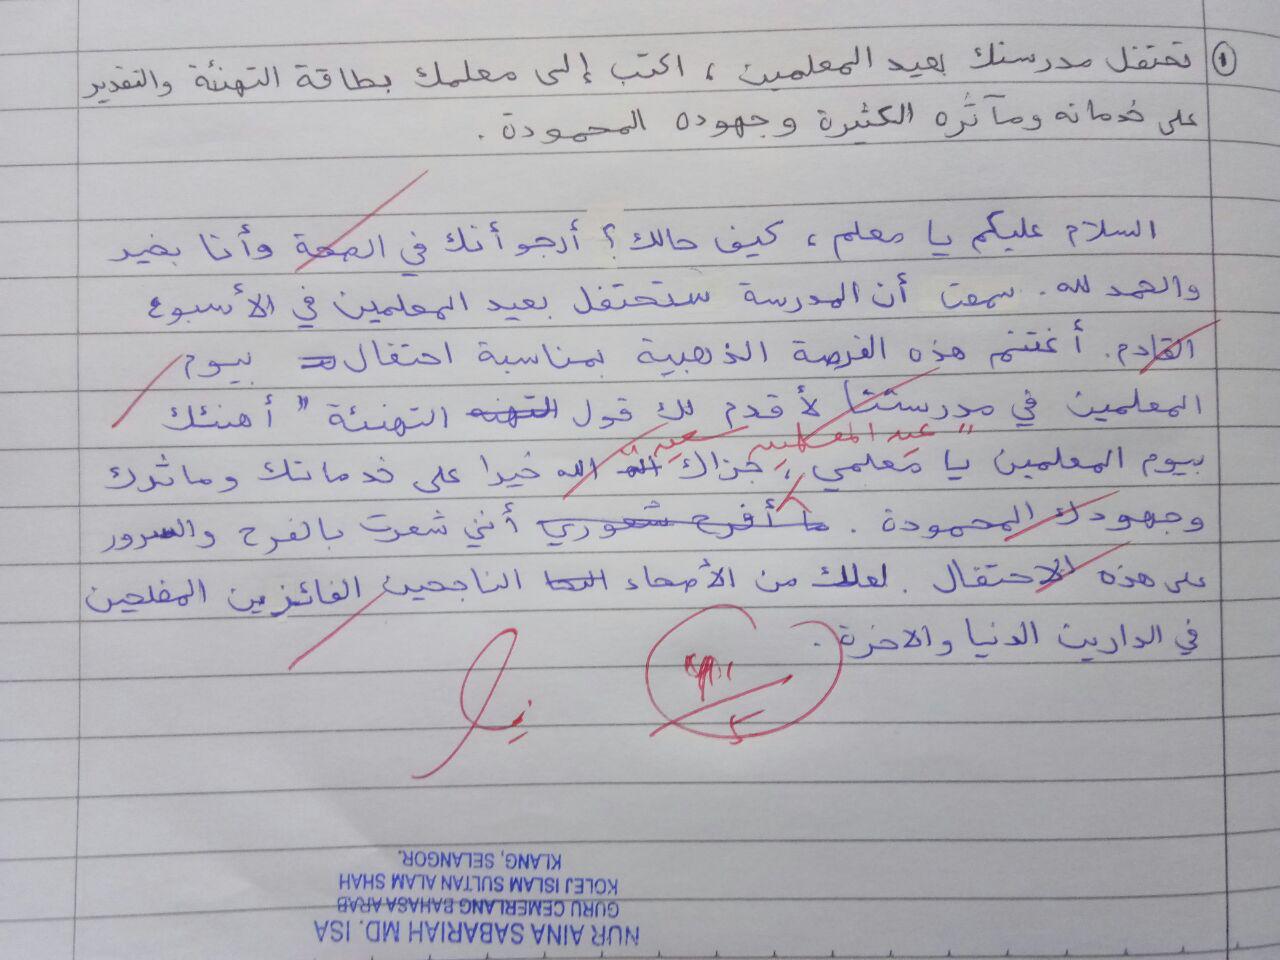 ① تحتفل مدرستك بعيد المعلمين ، اكتب إلى معلمك بطاقة التهنئة والتقدير
على خدماته ومآثره الكثيرة وجهوده المحمودة .
السلام عليكم يا معلم ، كيف حالك ؟ أرجو أنك في الصحة وأنا بخير
والحمد لله . سمعت أن المدرسة ستحتفل بعيد المعلمين في الأسبوع
القادم . أغتنم هذه الفرصة الذهبية بمناسبة احتفال بيوم
المعلمين في مدرستنا لأقدم لك قول التهنه التهنئة " أهنئك
" عيد المعلمين سعيد "
بيوم المعلمين يا معلمي ، جزاك الله خيرا على خدماتك وماثرك
وجهودك المحمودة . ما أفرح شعوري أنني شعرت بالفرح والسرور
على هذه الاحتفال . لعلك من الأصحاء الناجحين الفائزين المفلحين
في الدارين الدنيا والاخرة .
٥
NUR AINA SABARIAH MD. ISA
GURU CEMERLANG BAHASA ARAB
KOLEJ ISLAM SULTAN ALAM SHAH
KLANG, SELANGOR.